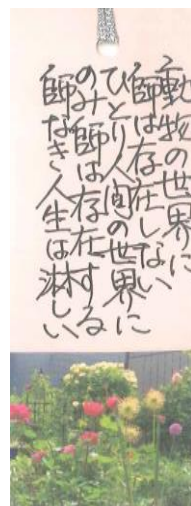 動物の世界に
師は存在しない
ひとり人間の世界に
のみ師は存在する
師なき人生は淋しい